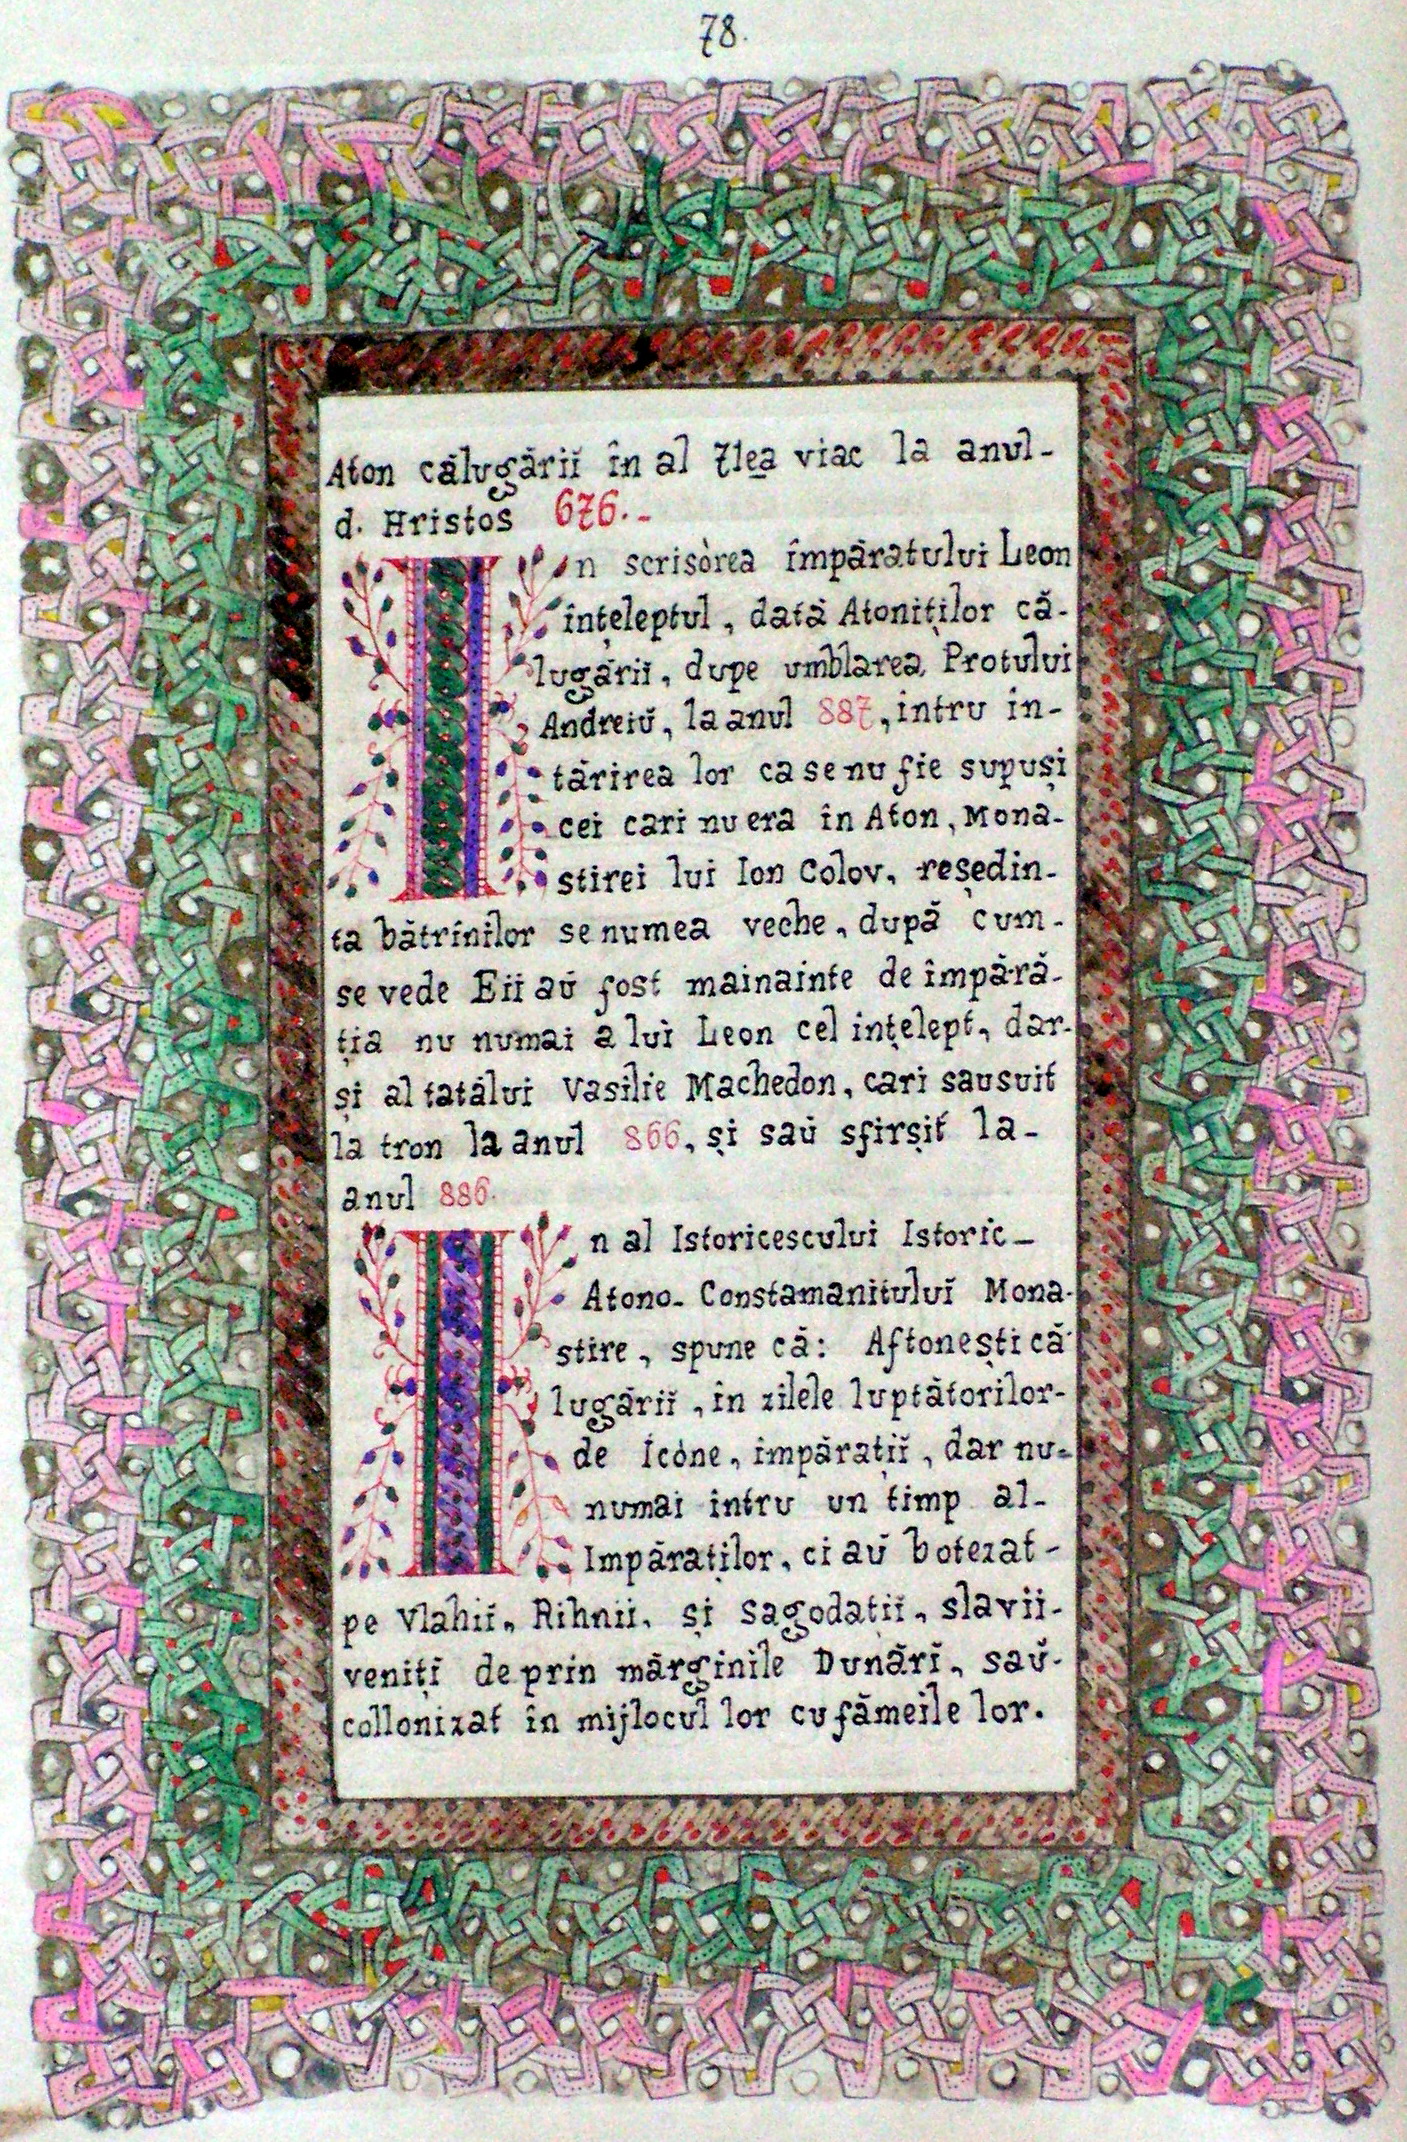 78.
Aton călugării în al 7lea viac la anul-
d. Hristos 676.-
In scrisòrea împăratului Leon
înțeleptul, dată Atoniților că-
lugării, dupe umblarea Protului
Andreiŭ, la anul 887, intru in-
tărirea lor ca se nu fie supuși
cei cari nu era în Aton, Mona-
stirei lui Ion Colov, reședin-
ta bătrînilor se numea veche, după cum-
se vede Eii aŭ fost mainainte de împără-
ția nu numai a lui Leon cel ințelept, dar-
și al tatălui Vasilie Machedon, cari sausuit
la tron la anul 866, și saŭ sfirșit la-
anul 886.
In al Istoricescului Istoric-
Atono-Constamanitului Mona-
stire, spune că: Aftonești că-
lugării, în zilele luptătorilor-
de Icóne, impărații, dar nu-
numai intru un timp al-
Impăraților, ci aŭ botezat-
pe Vlahii, Rihnii, și Sagodații, slavii-
veniți deprin mărginile Dunări, saŭ-
collonizat în mijlocul lor cu fămeile lor.